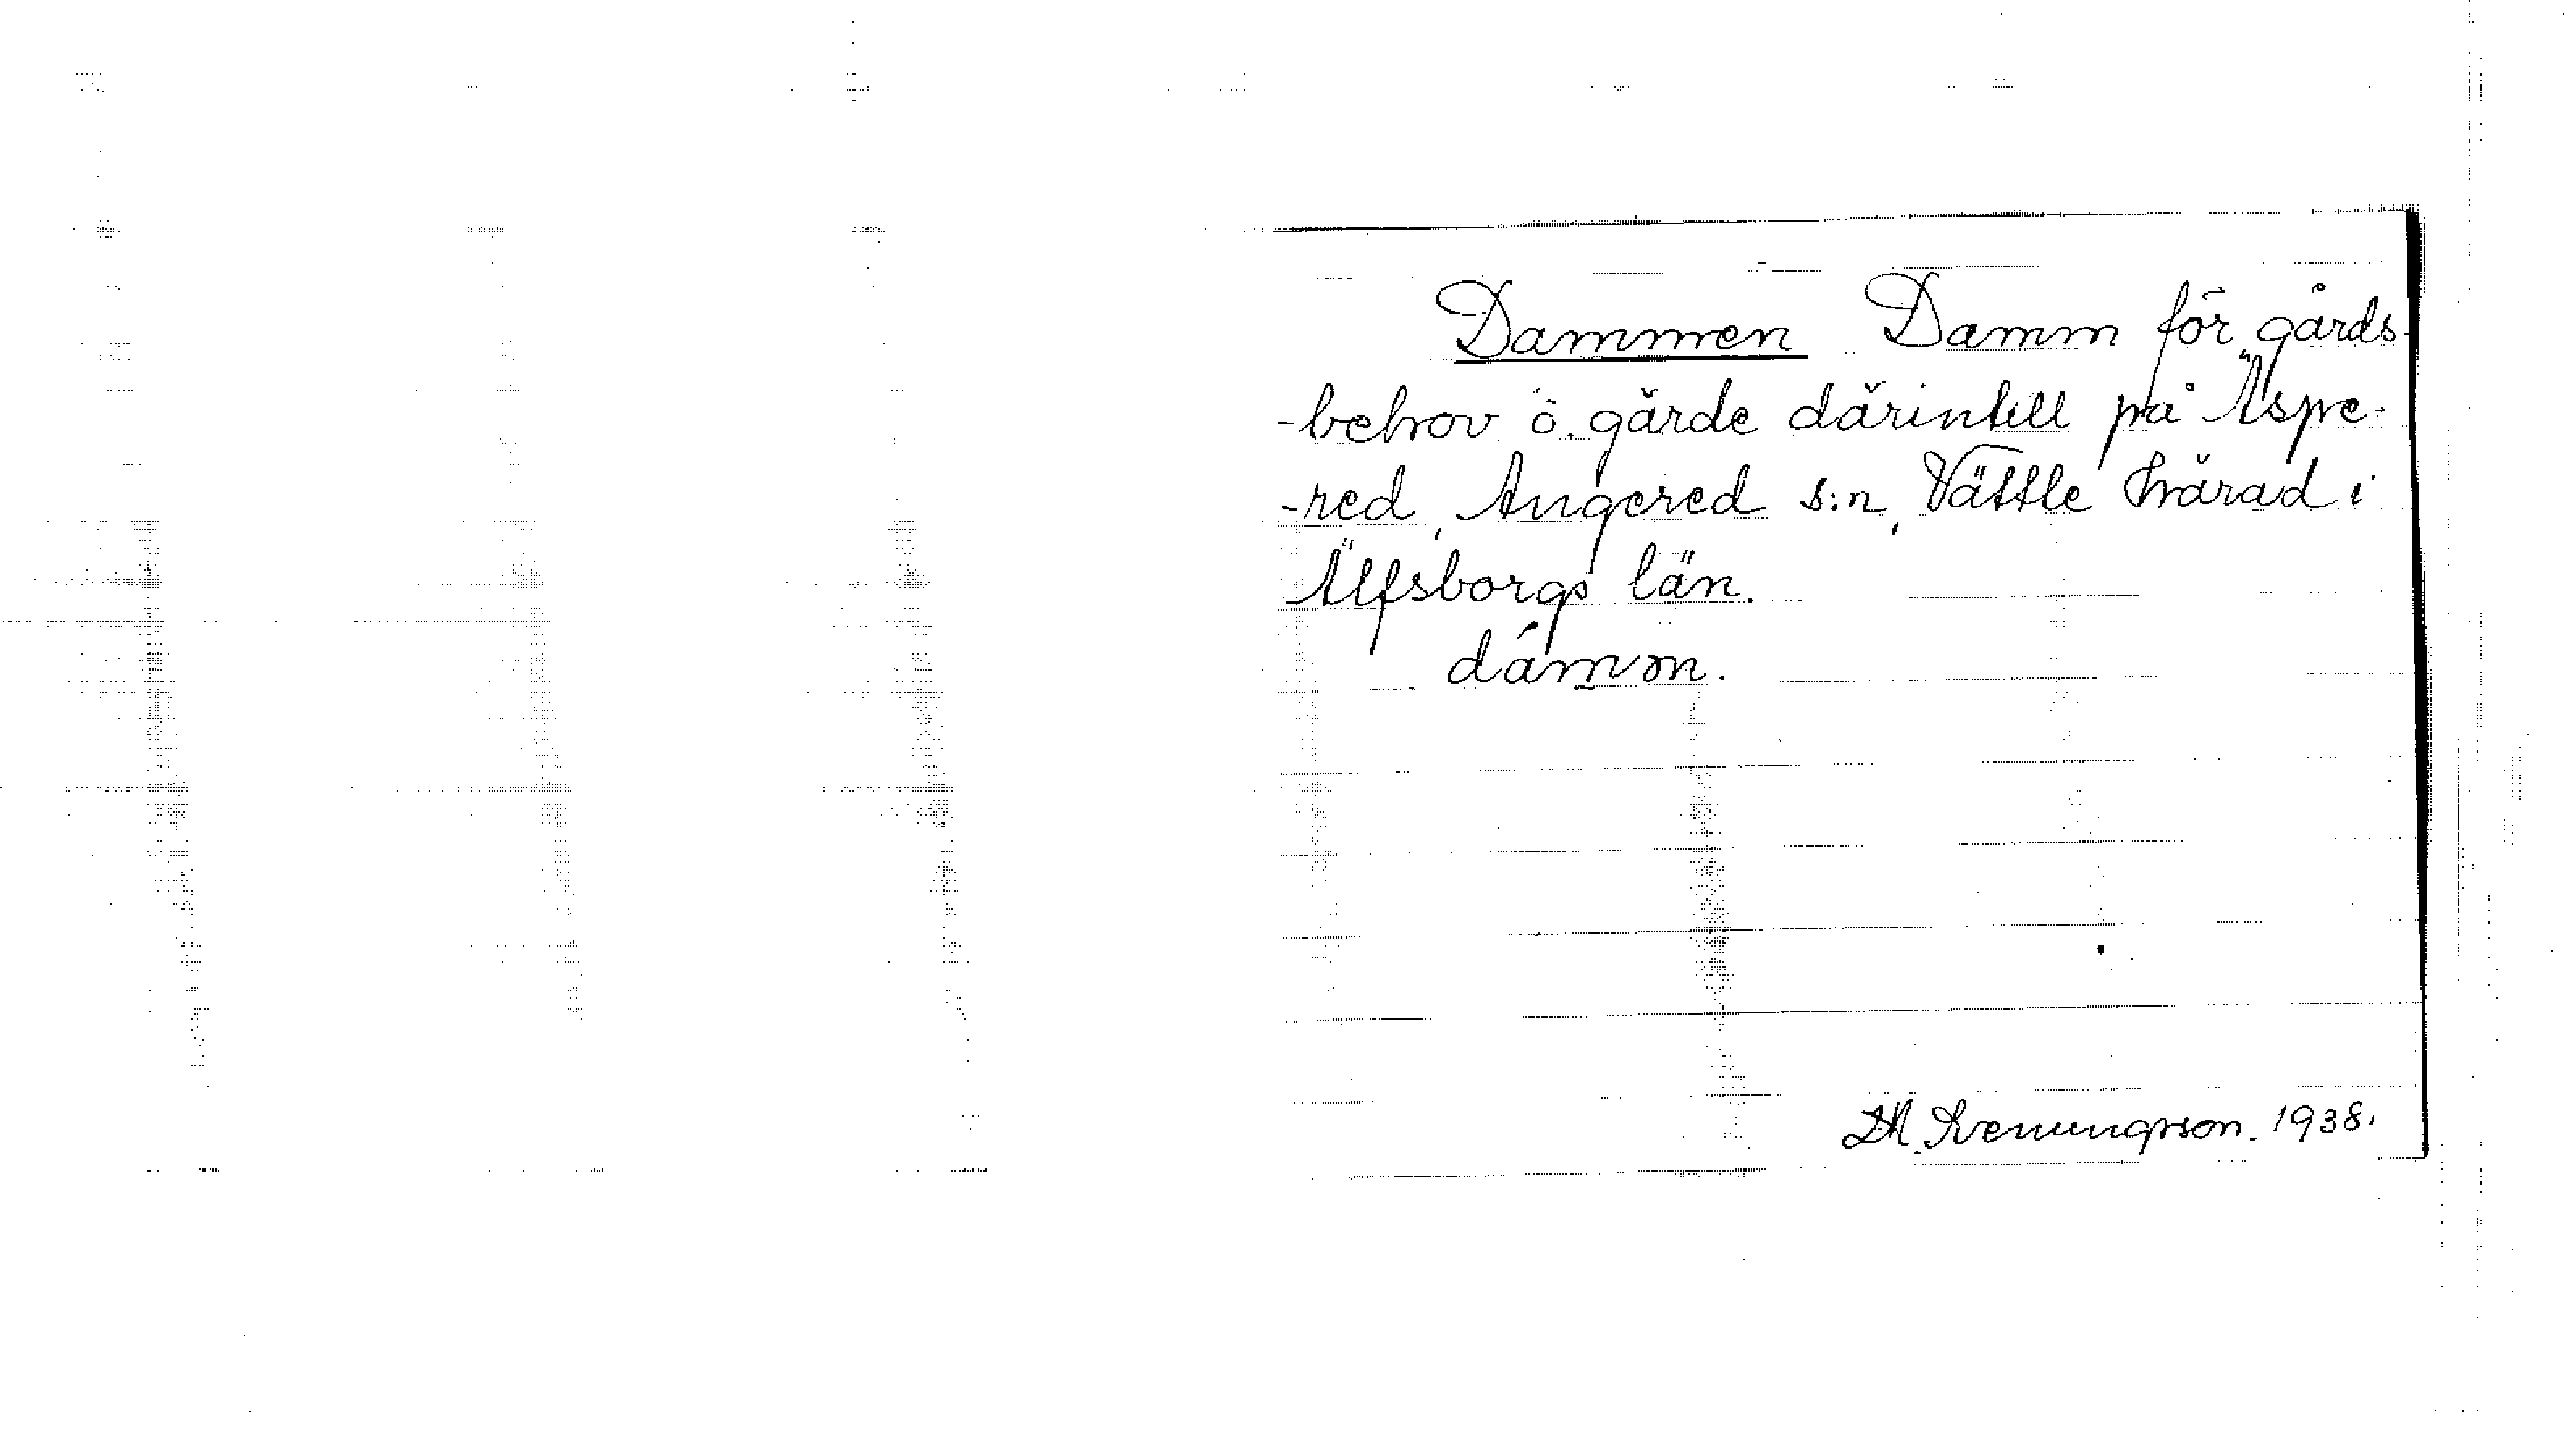 Dammen Damm för gårds-
-behov ö. gärde därintill på Äspe-
-red, Angered s:n, Vättle härad i
Älfsborgs län.
dámm.
1938.